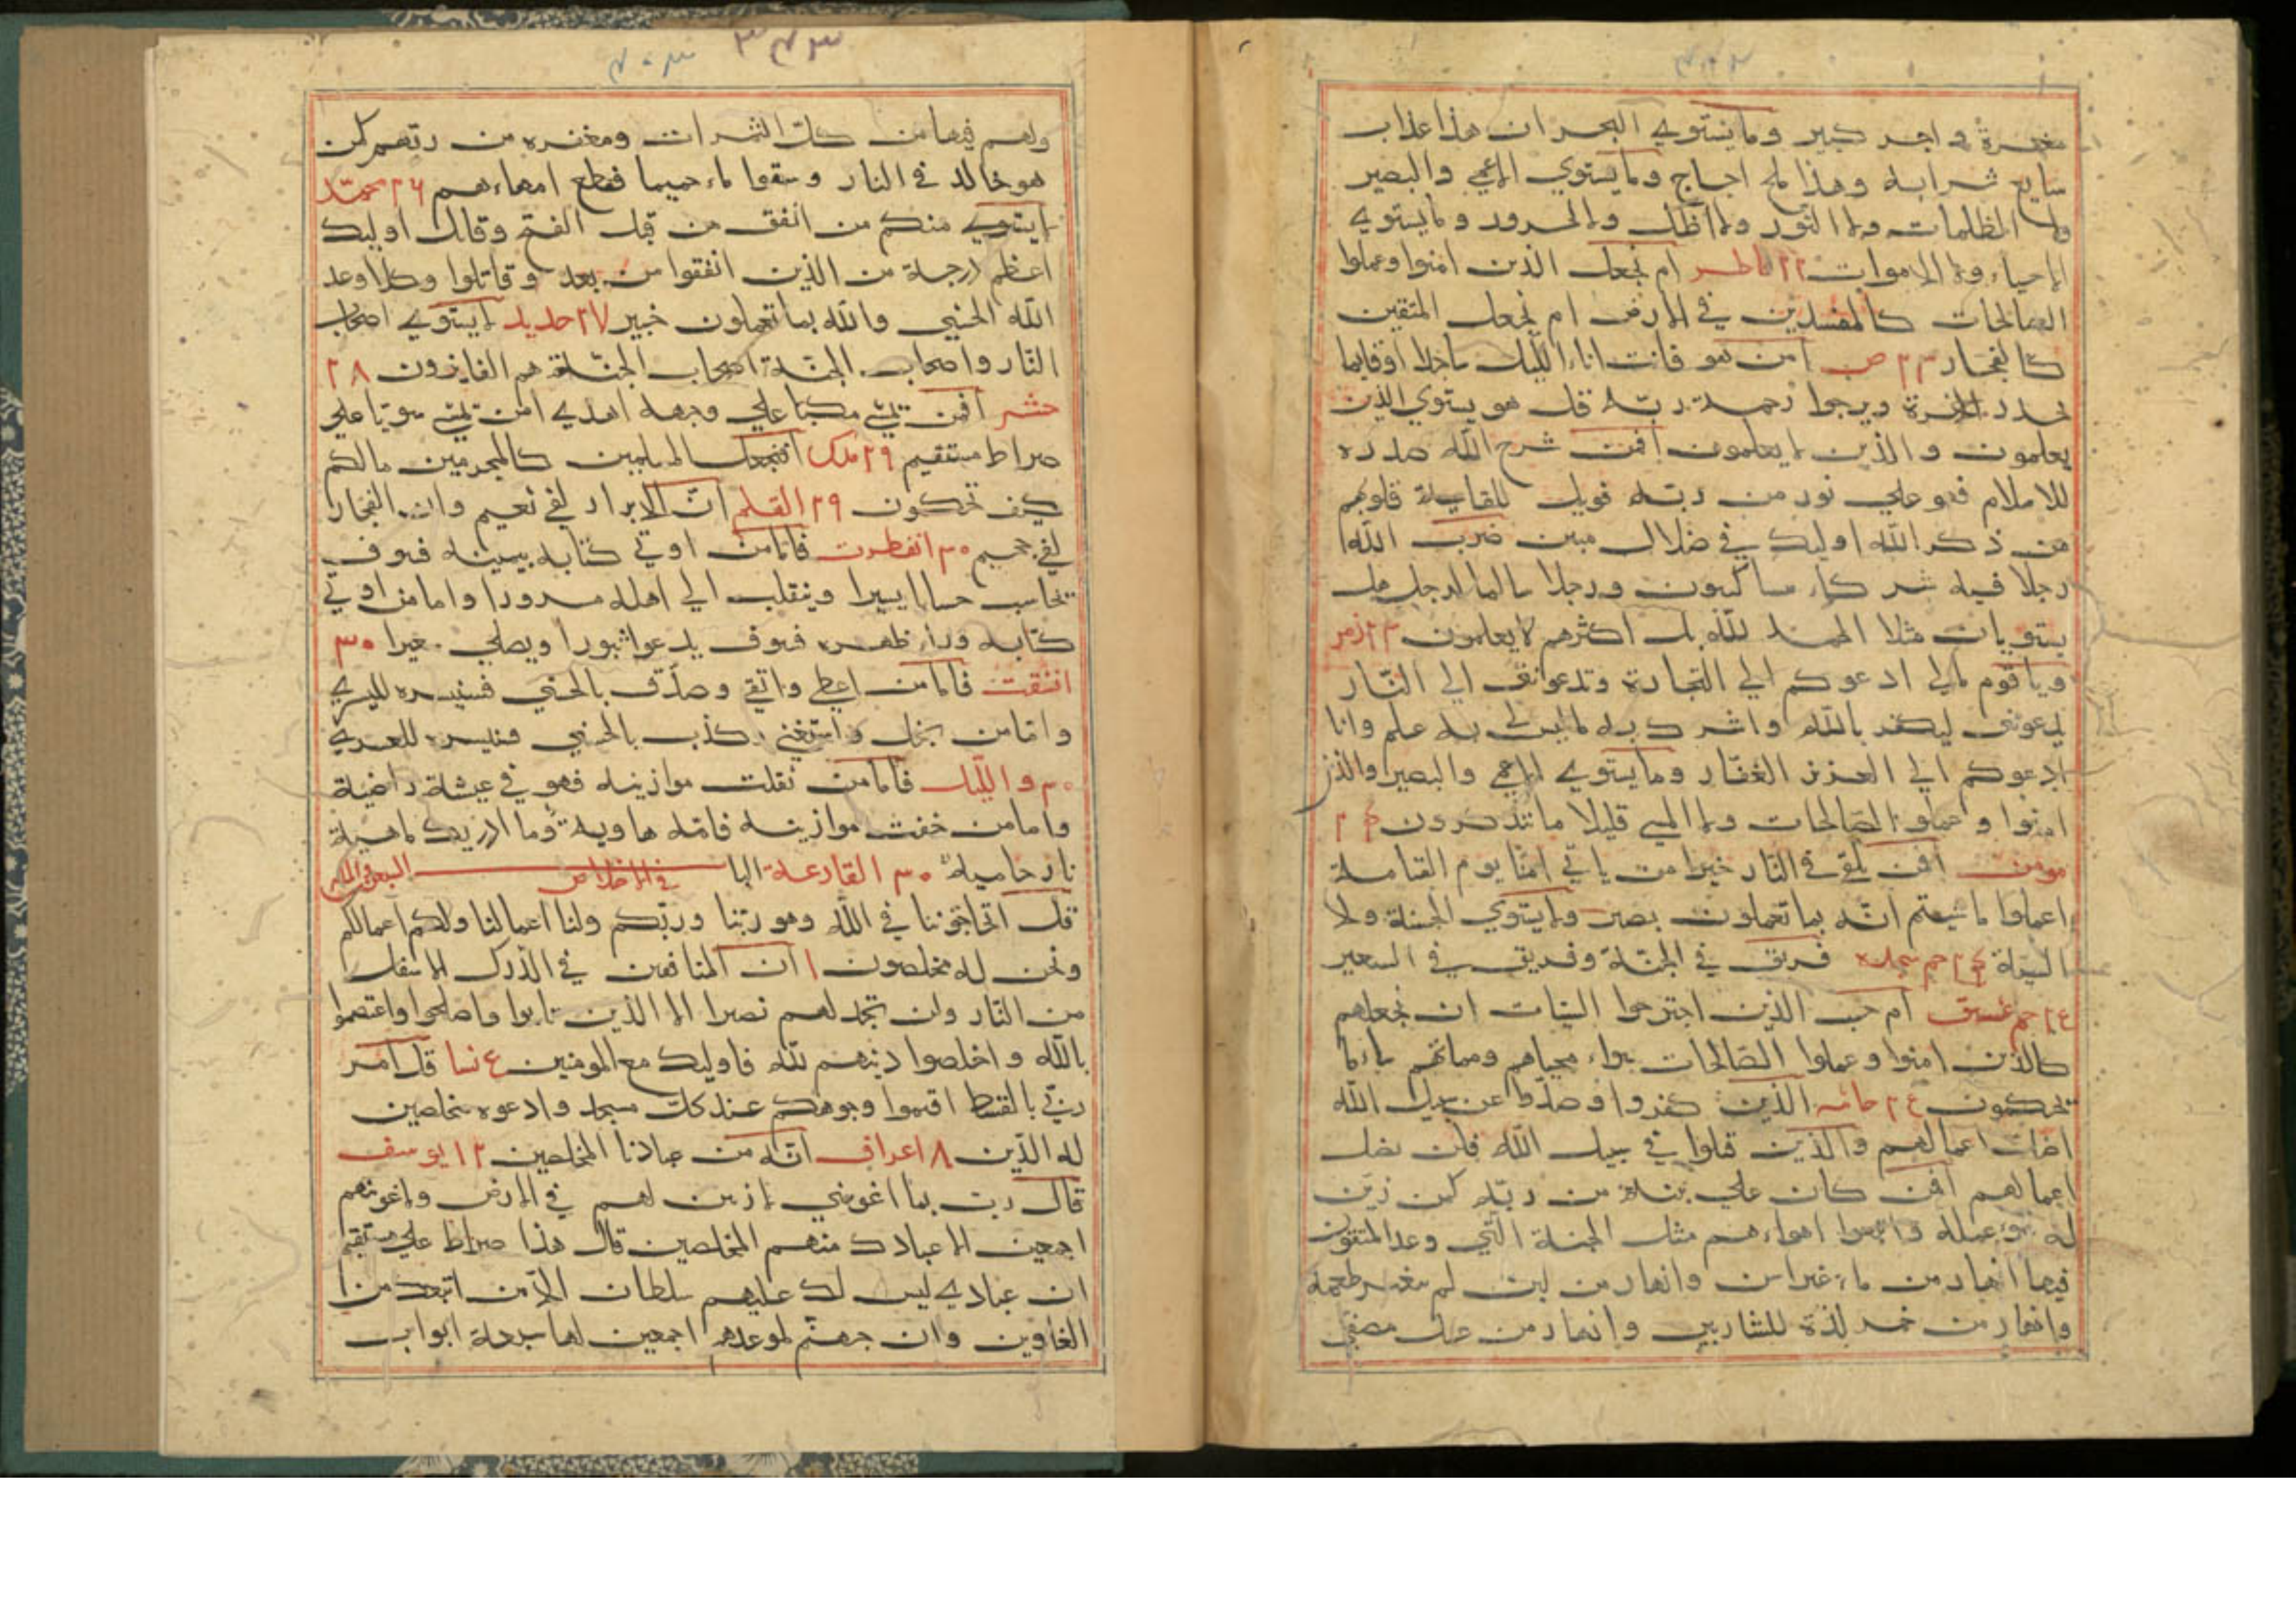 مغفرة و اجر كبير وما يستوي البحران هذا عذاب
سايغ شرابه وهذا ملح اجاج وما يستوي الاعمي والبصير
ولا الظلمات ولا النور ولا الظل ولا الحرور وما يستوي
الاحياء ولا الاموات ٢٢ فاطر ام نجعل الذين امنوا وعملوا
الصالحات كالمفسدين في الارض ام نجعل المتقين
كالفجار ٢٣ ص امن هو قانت اناء الليل ساجدا اوقايما
يحذر الاخرة ويرجوا رحمة ربه قل هو يستوي الذين
يعلمون والذين لا يعلمون افمن شرح الله صدره
للاسلام فهو علي نور من ربه فويل للقاسية قلوبهم
من ذكر الله اوليك في ضلال مبين ضرب الله
رجلا فيه شركاء متشاكسون ورجلا سالما لرجل هل
يستويان مثلا الحمد لله بل اكثرهم لا يعلمون ٢٣ زمر
وياقوم مالي ادعوكم الي النجارة وتدعونني الي النار
تدعونني ليكفر بالله واشرك به ما ليس لي به علم وانا
ادعوكم الي العزيز الغفار وما يستوي الاعمي والبصير والذين
امنوا وعملوا الصالحات ولا المسي قليلا ما تتذكرون ٢٤
مومن افمن يلقي في النار خيرا من ياتي امنا يوم القيامة
اعملوا ما شيتم انه بما تعملون بصير ولا يستوي الحسنة ولا
السيئة ٢٤ حم سجده فريق في الجنة وفريق في السعير
٢٤ حم عسق ام حسب الذين اجترحوا السيات ان نجعلهم
كالذين امنوا وعملوا الصالحات سواء محياهم ومماتهم ساء ما
يحكمون ٢٤ جاثيه الذين كفروا وصدوا عن سبيل الله
اضل اعمالهم والذين قتلوا في سبيل الله فلن يضل
اعمالهم افمن كان علي بينة من ربه كمن زين
له سوء عمله واتبعوا اهواءهم مثل الجنة التي وعد المتقون
فيها انهار من ماء غير اسن وانهار من لبن لم يتغير طعمه
وانهار من خمر لذة للشاربين وانهار من عسل مصفي
ولهم فيها من كل الثمرات ومغفره من ربهم كمن
هو خالد في النار وسقوا ماء حميما فقطع امعاءهم ٢٦ محمد
لا يستوي منكم من انفق من قبل الفتح وقاتل اوليك
اعظم درجة من الذين انفقوا من بعد وقاتلوا وكلا وعد
الله الحسني والله بما تعملون خبير ٢٧ حديد لا يستوي اصحاب
النار واصحاب الجنة اصحاب الجنة هم الفايزون ٢٨
حشر افمن يمشي مكبا علي وجهه اهدي امن يمشي سويا علي
صراط مستقيم ٢٩ ملك افنجعل المسلمين كالمجرمين مالكم
كيف تحكمون ٢٩ القلم ان الابرار لفي نعيم وان الفجار
لفي جحيم ٣٠ انفطرت فاما من اوتي كتابه بيمينه فسوف
يحاسب حسابا يسيرا وينقلب الي اهله مسرورا واما من اوتي
كتابه وراء ظهره فسوف يدعوا ثبورا ويصلي سعيرا ٣٠
انشقت فاما من اعطي واتقي وصدق بالحسني فسنيسره لليسري
واما من بخل واستغني وكذب بالحسني فسنيسره للعسري
٣٠ والليل فاما من ثقلت موازينه فهو في عيشة راضية
واما من خفت موازينه فامه هاوية وما ادريك ما هية
نار حامية ٣٠ القارعة البا السبعون في الاخلاص
قل اتحاجوننا في الله وهو ربنا وربكم ولنا اعمالنا ولكم اعمالكم
ونحن له مخلصون ١ ان المنافقين في الدرك الاسفل
من النار ولن تجد لهم نصيرا الا الذين تابوا واصلحوا واعتصموا
بالله واخلصوا دينهم لله فاوليك مع المومنين ٤ نسا قل امر
ربي بالقسط اقيموا وجوهكم عند كل مسجد وادعوه مخلصين
له الدين ٨ اعراف انه من عبادنا المخلصين ١٢ يوسف
قال رب بما اغويتني لازينن لهم في الارض ولاغوينهم
اجمعين الا عبادك منهم المخلصين قال هذا صراط علي مستقيم
ان عبادي ليس لك عليهم سلطان الا من اتبعك من
الغاوين وان جهنم لموعدهم اجمعين لها سبعة ابواب